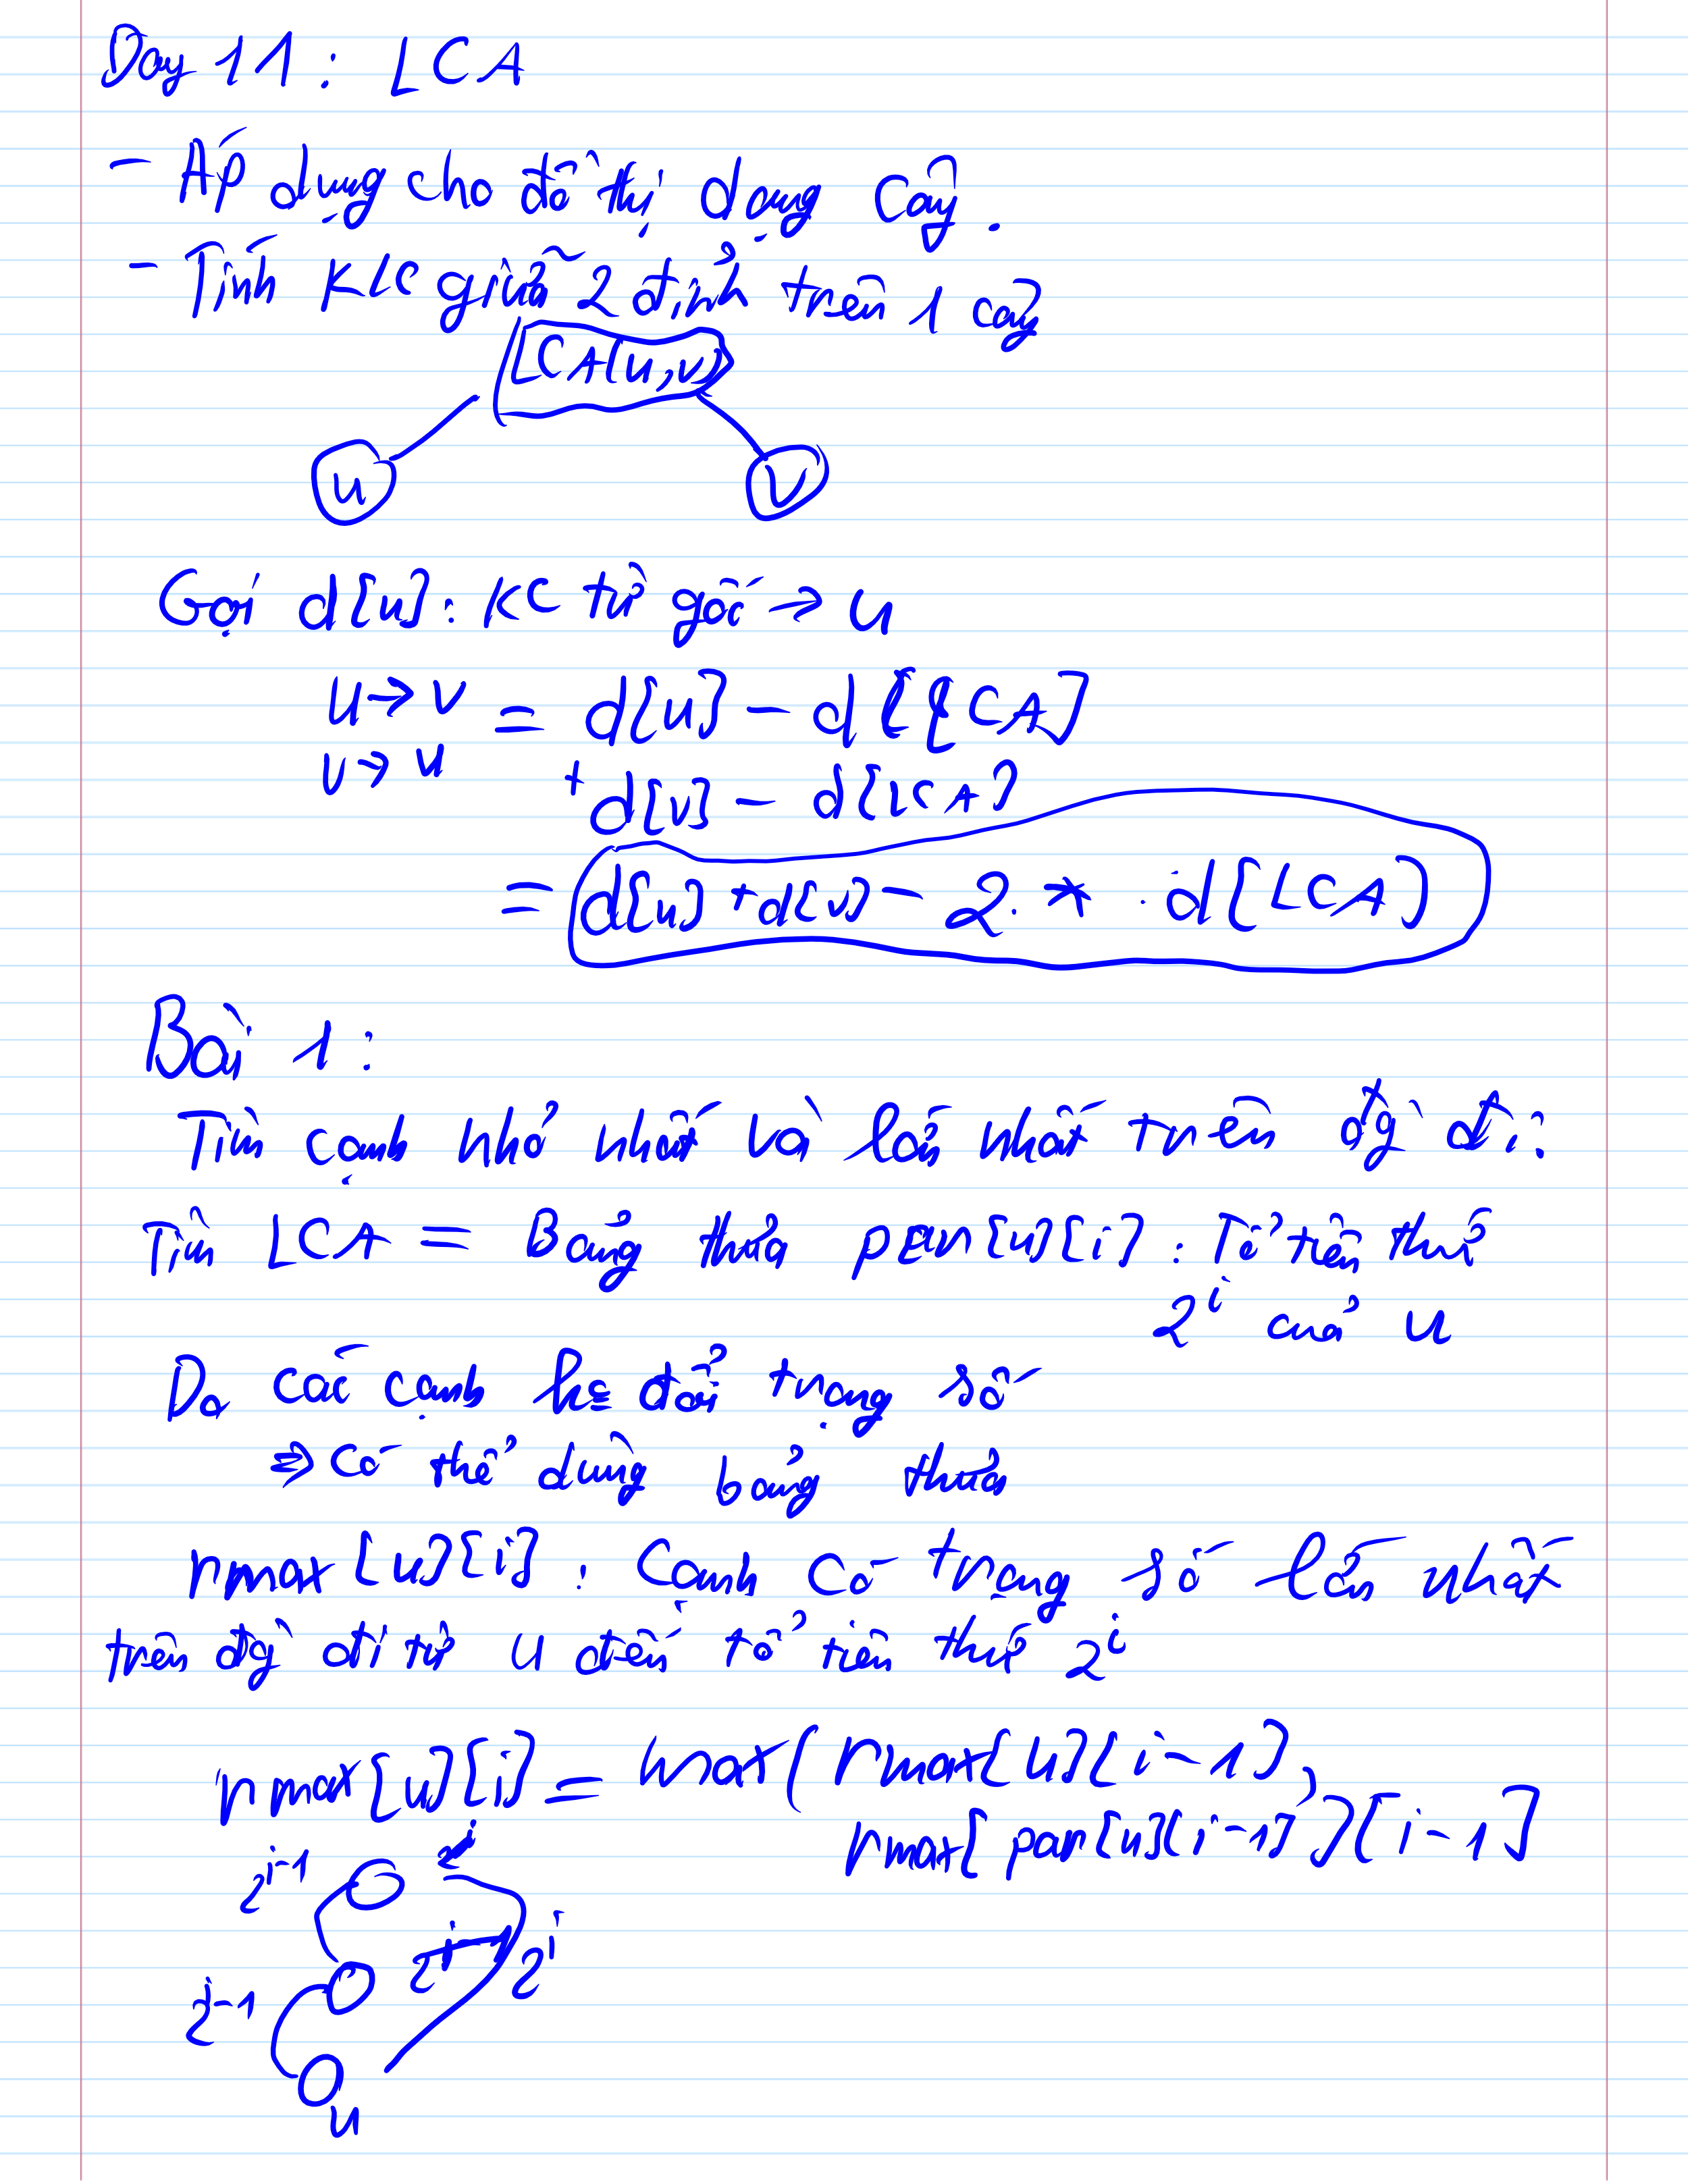 Day 11 : LCA
- Áp dụng cho đồ thị dạng cây.
- Tính KLC giữa 2 đỉnh trên 1 cây
LCA(u,v)
u
v
Gọi d[u]: KC từ gốc → u
u → v = d[u] - d[LCA]
v → u
+ d[v] - d[LCA]
= d[u] + d[v] - 2 * d[LCA]
Bài 1 :
Tìm cạnh nhỏ nhất và lớn nhất trên đg` đi:
Tìm LCA = Bảng thưa par[u][i] : Tổ tiên thứ
2^i của u
Do các cạnh đổi trọng số
⇒ Có thể dùng bảng thưa
rmax[u][i] : Cạnh có trọng số lớn nhất
trên đg` đi từ u đến tổ tiên thứ 2^i
rmax[u][i] = max(rmax[u][i-1],
rmax[par[u][i-1]][i-1]
2^i-1
2^i
2^i
2^i-1
u